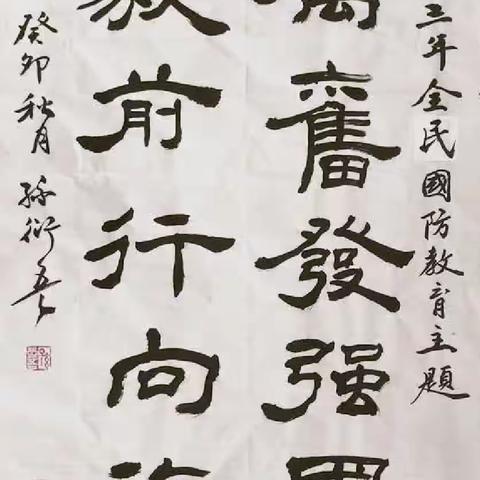 三年全民國防教育主題
奮發强國
前行向
癸卯秋月 孫衍